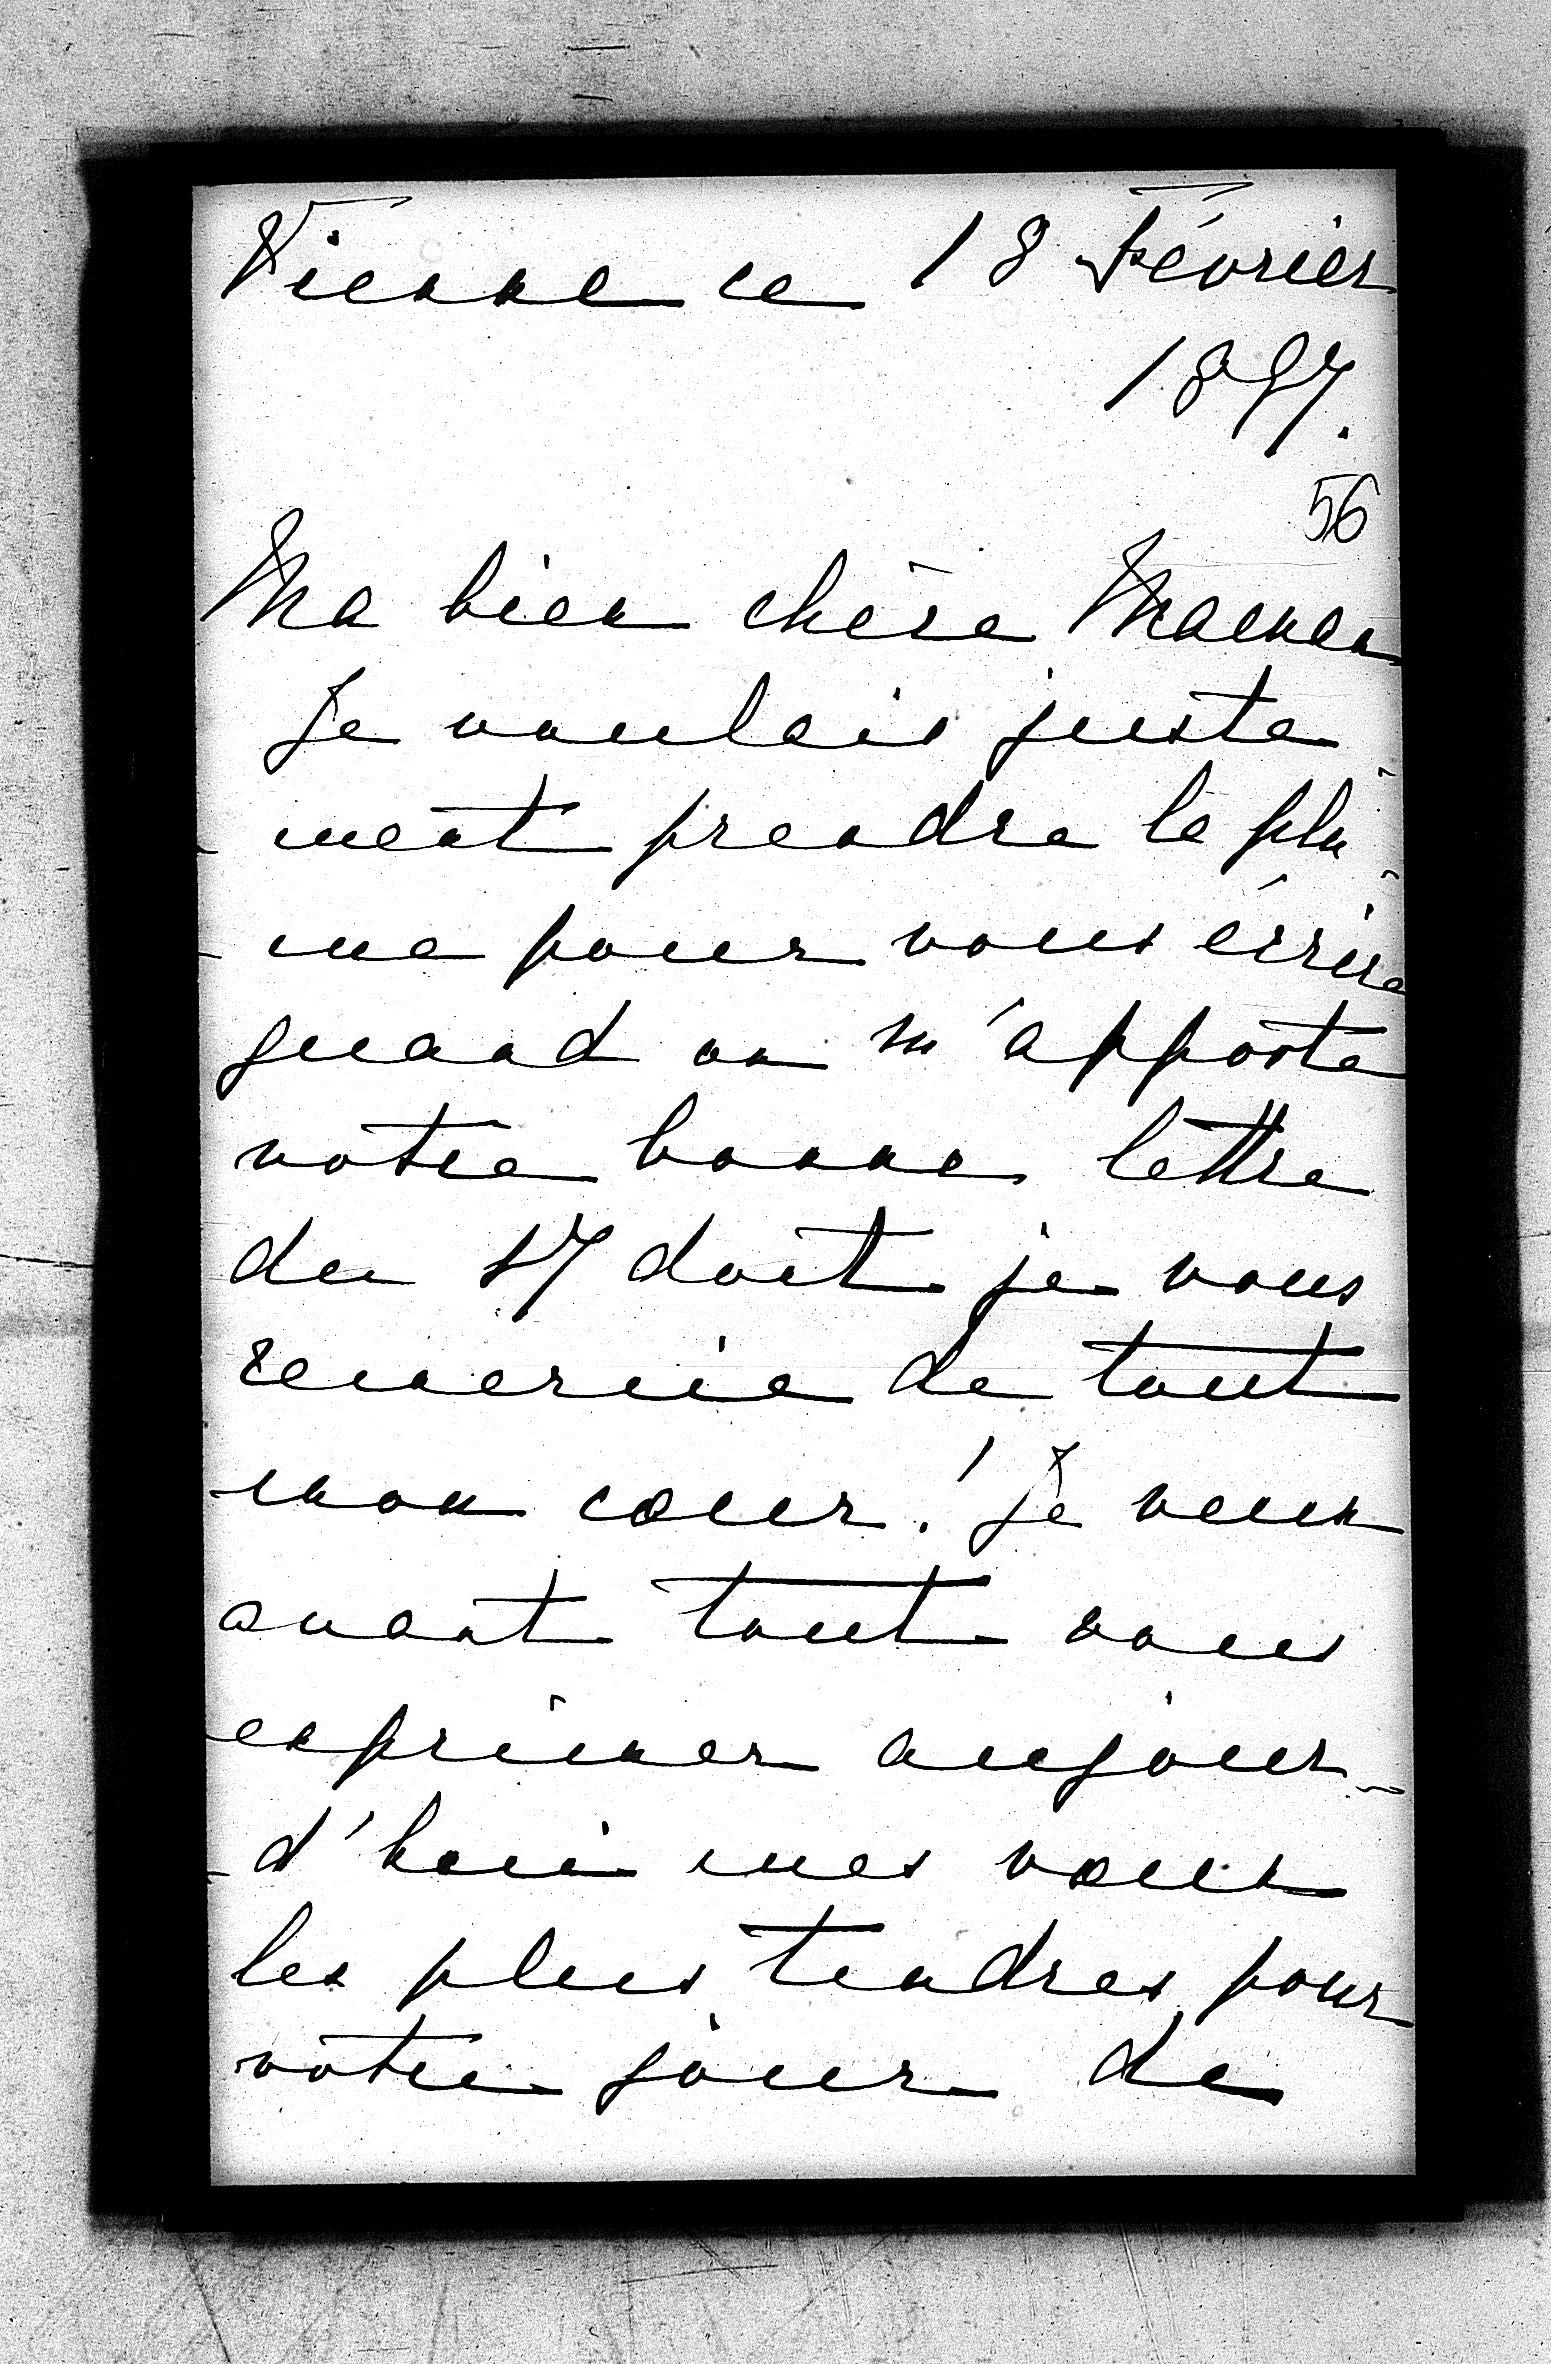 Vienne ce 18 Février
1897.
56
Ma bien chère Maman
Je voulais juste-
-ment prendre la plu-
-me pour vous écrire
quand on m'apporte
votre bonne lettre
du 17 dont je vous
remercie de tout
mon cœur! Je veux
avant tout vous
exprimer aujour-
-d'hui mes vœux
les plus tendres pour
votre jour de